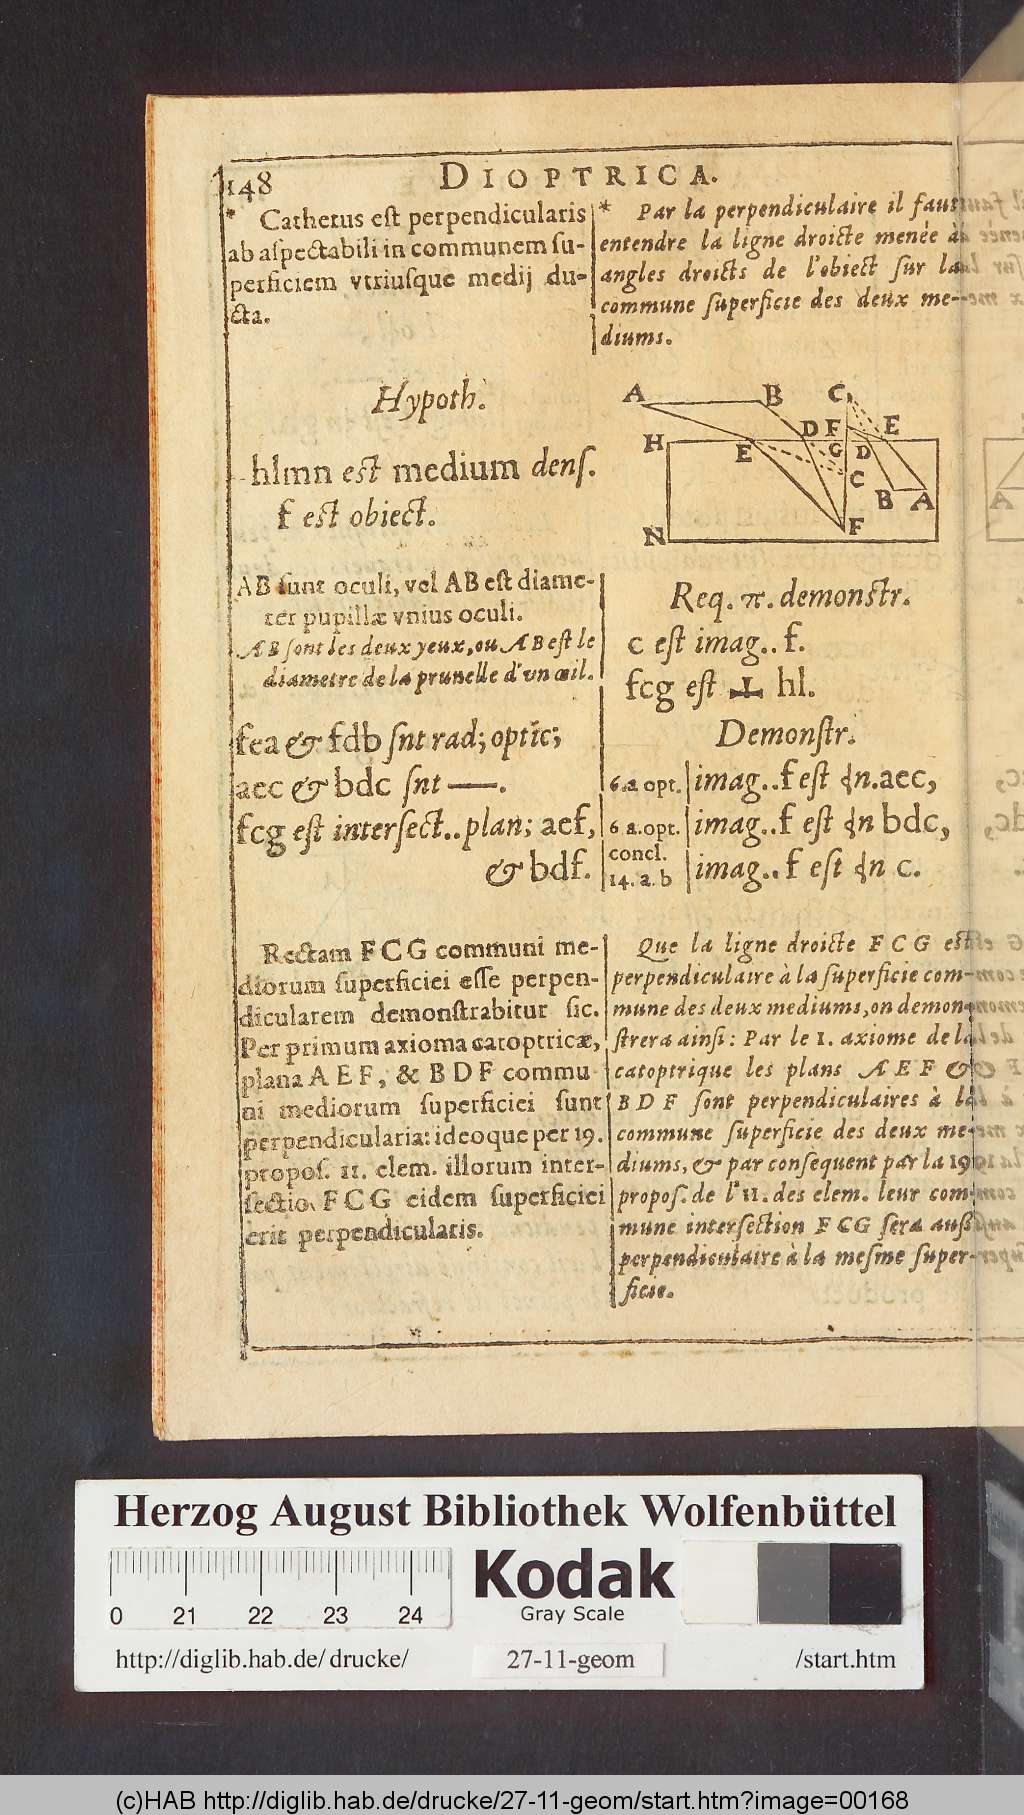 148
DIOPTRICA.
* Cathetus est perpendicularis
ab aspectabili in communem su-
perficiem vtriusque medij du-
cta.
* Par la perpendiculaire il faut
entendre la ligne droicte menée à
angles droicts de l'obiect sur la
commune superficie des deux me-
diums.
Hypoth.
hlmn est medium dens.
f est obiect.
A B C
H E D F E
G D
C
B A
N F
AB sunt oculi, vel AB est diame-
ter pupillæ vnius oculi.
AB sont les deux yeux, ou AB est le
diametre de la prunelle d'un œil.
fea & fdb snt rad; optic;
aec & bdc snt —.
fcg est intersect.. plan; aef,
& bdf.
Req. π. demonstr.
c est imag.. f.
fcg est ⊥ hl.
Demonstr.
6.a opt. imag.. f est dn. aec,
6 a.opt. imag.. f est dn bdc,
concl.
14. a. b imag.. f est dn c.
Rectam FCG communi me-
diorum superficiei esse perpen-
dicularem demonstrabitur sic.
Per primum axioma catoptricæ,
plana AEF, & BDF commu
ni mediorum superficiei sunt
perpendicularia: ideoque per 19.
propos. 11. elem. illorum inter-
sectio FCG eidem superficiei
erit perpendicularis.
Que la ligne droicte FCG est
perpendiculaire à la superficie com-
mune des deux mediums, on demon-
strera ainsi: Par le 1. axiome de la
catoptrique les plans AEF &
BDF sont perpendiculaires à la
commune superficie des deux me-
diums, & par consequent par la 19
propos. de l' 11. des elem. leur com-
mune intersection FCG sera aussi
perpendiculaire à la mesme super-
ficie.
Herzog August Bibliothek Wolfenbüttel
Kodak
Gray Scale
0 21 22 23 24
http://diglib.hab.de/ drucke/ 27-11-geom /start.htm
(c)HAB http://diglib.hab.de/drucke/27-11-geom/start.htm?image=00168